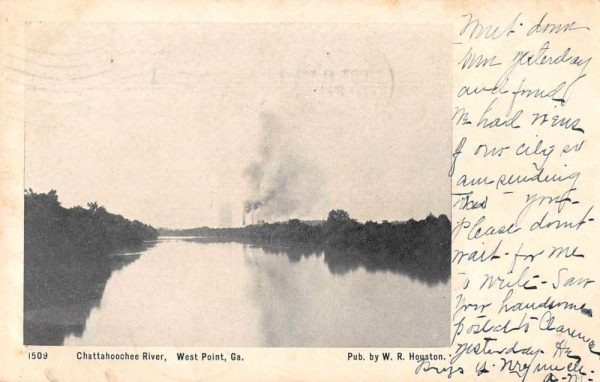 went down
town yesterday
and found
we had views
of our city so
am sending
this you-
please don't
wait - for me
to write - Saw
your handsome
postal to Clarence
yesterday. He
A.M.
1509 Chattahoochee River, West Point, Ga. Pub. by W. R. Houston.